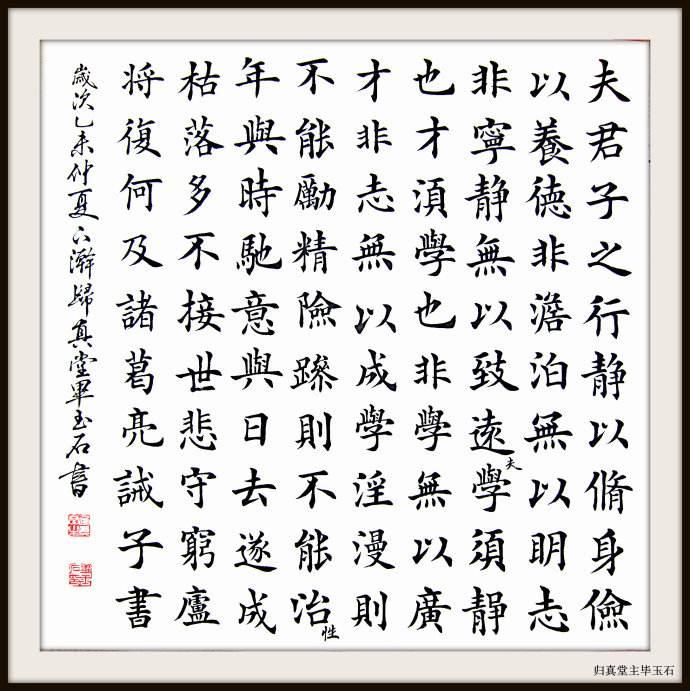 夫君子之行静以脩身儉
以養德非澹泊無以明志
非寧静無以致遠夫學須静
也才湏學也非學無以廣
才非志無以成學淫漫則
不能勵精險躁則不能冶性
年與時馳意與日去遂成
枯落多不接世悲守窮廬
将復何及諸葛亮誡子書
歲次乙未仲夏下澣歸真堂畢玉石書
归真堂主毕玉石